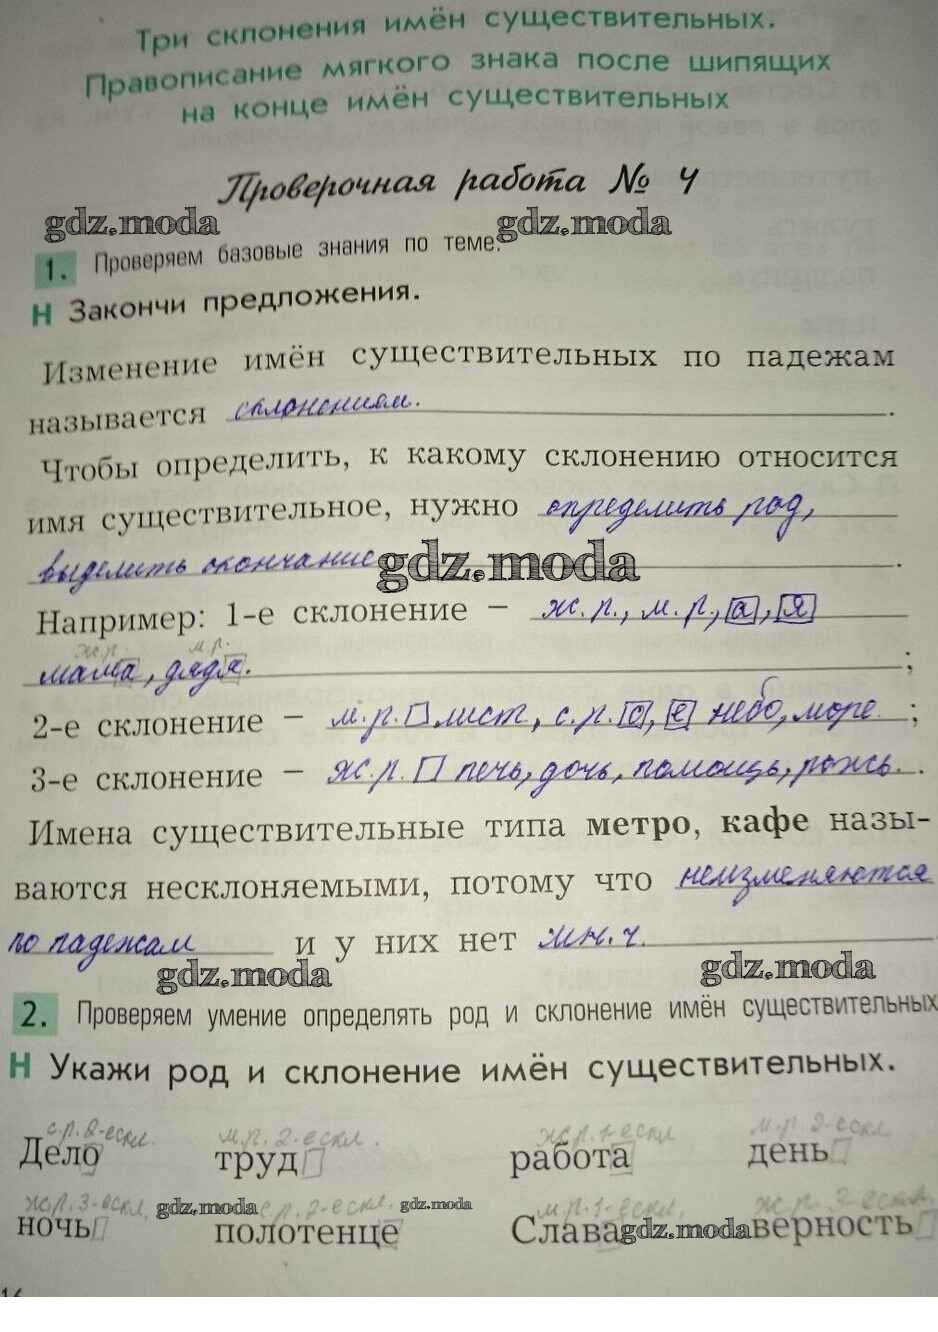 Три склонения имён существительных.
Правописание мягкого знака после шипящих
на конце имён существительных
Проверочная работа № 4
gdz.moda gdz.moda
1. Проверяем базовые знания по теме.
Н Закончи предложения.
Изменение имён существительных по падежам
называется склонением. .
Чтобы определить, к какому склонению относится
имя существительное, нужно определить род,
выделить окончание gdz.moda .
Например: 1-е склонение – ж.р., м.р., а, я
ж.р. м.р.
мама, дядя. ;
2-е склонение – м.р. лист, с.р. о, е небо, море ;
3-е склонение – ж.р. печь, дочь, помощь, рожь. .
Имена существительные типа метро, кафе назы-
ваются несклоняемыми, потому что неизменяются
по падежам и у них нет мн.ч.
gdz.moda gdz.moda
2. Проверяем умение определять род и склонение имён существительных
Н Укажи род и склонение имён существительных.
с.р. 2-ескл. м.р. 2-ескл. ж.р. 1-ескл м.р 2-ескл
Дело труд работа день
ж.р. 3-ескл. с.р. 2-ескл. м.р. 1-ескл. ж.р.
ночь gdz.moda полотенце gdz.moda Слава gdz.moda верность